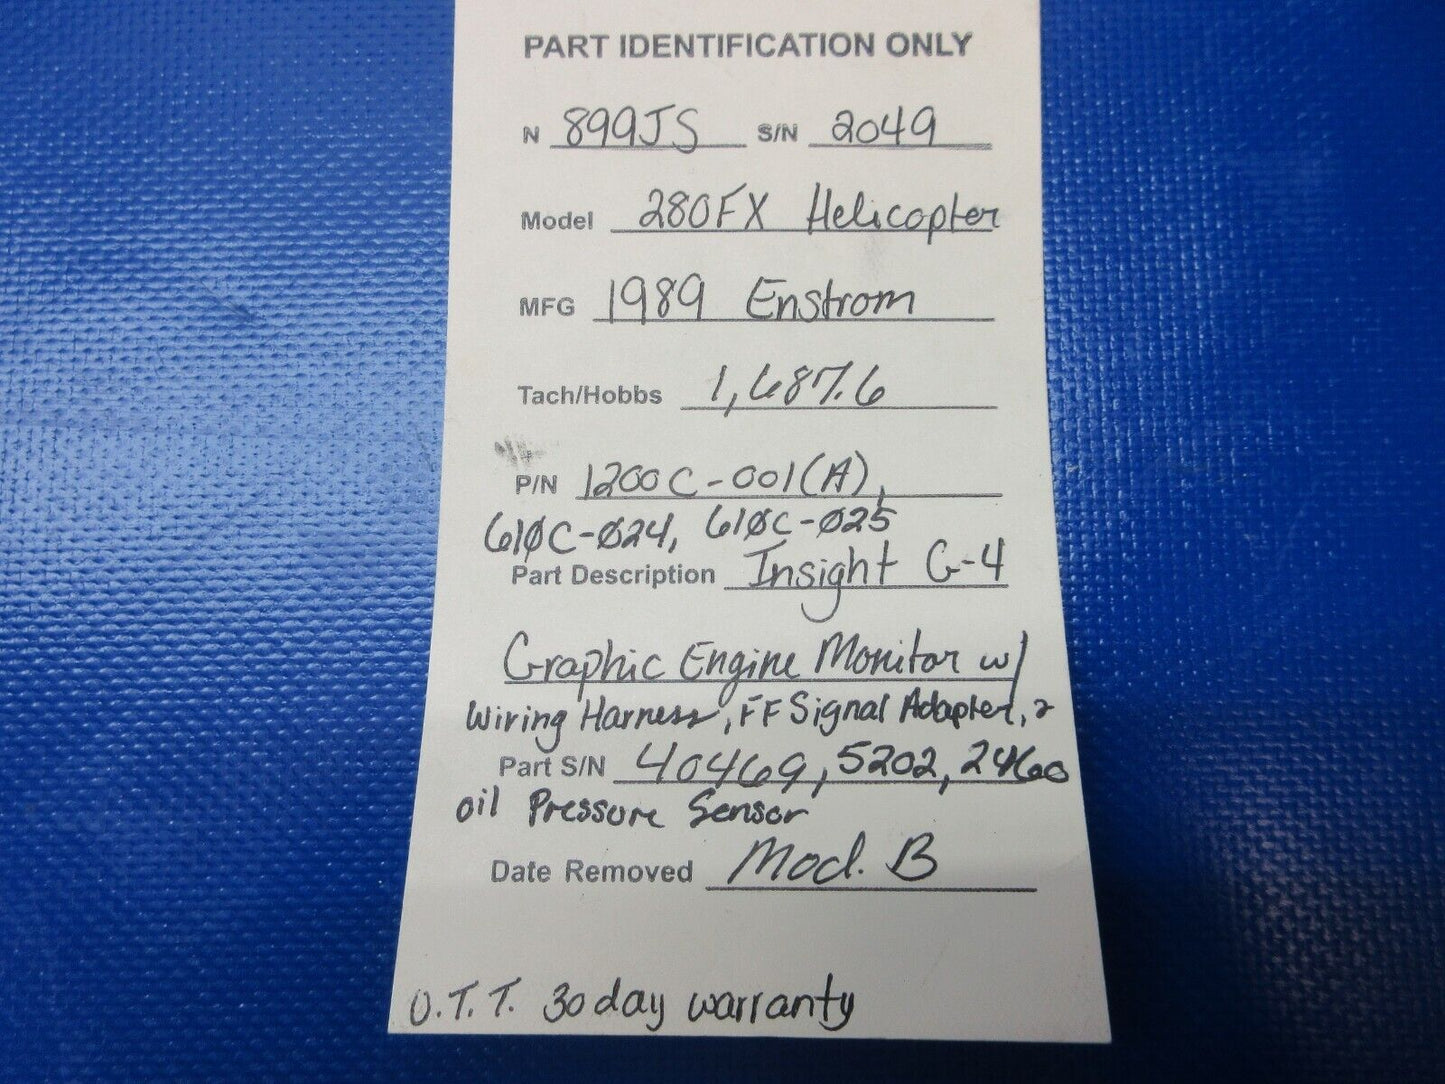 PART IDENTIFICATION ONLY
N 899JS S/N 2049
Model 280FX Helicopter
MFG 1989 Enstrom
Tach/Hobbs 1,687.6
P/N 1200C-001(A),
610C-024, 610C-025
Part Description Insight G-4
Graphic Engine Monitor w/
Wiring Harness, FF Signal Adapter, 2
Part S/N 40469, 5202, 2460
oil Pressure Sensor
Date Removed Mod. B
O.T.T. 30 day warranty